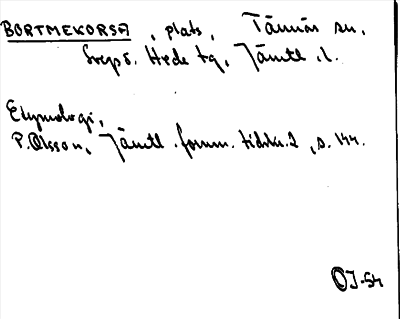 BORTMEKORSA, plats, Tännäs sn,
Sveps. Hede tg, Jämtl. l.
Etymologi,
P. Olsson, Jämtl. fornm. tidskr. 2, s. 144.
OJ-54